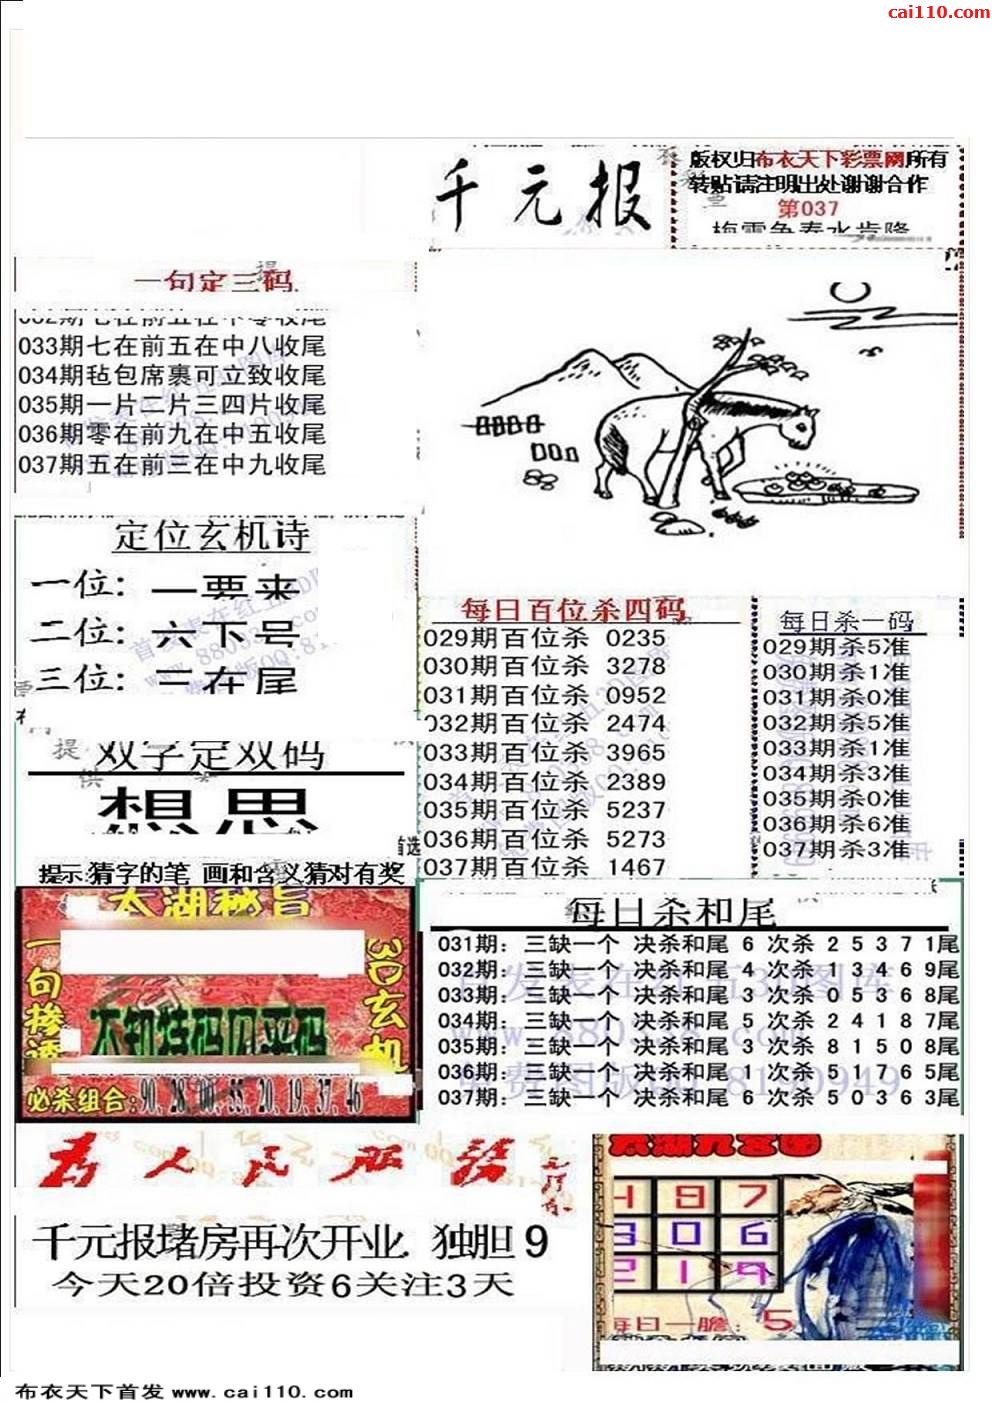 cai110.com
千元报
版权归布衣天下彩票网所有
转贴请注明出处谢谢合作
第037
一句定三码
033期七在前五在中八收尾
034期毡包席裹可立致收尾
035期一片二片三四片收尾
036期零在前九在中五收尾
037期五在前三在中九收尾
定位玄机诗
一位：一要来
二位：六下号
三位：三在尾
双字定双码
想思
提示:猜字的笔 画和含义猜对有奖
每日百位杀四码
029期百位杀 0235
030期百位杀 3278
031期百位杀 0952
032期百位杀 2474
033期百位杀 3965
034期百位杀 2389
035期百位杀 5237
036期百位杀 5273
037期百位杀 1467
每日杀一码
029期杀5准
030期杀1准
031期杀0准
032期杀5准
033期杀1准
034期杀3准
035期杀0准
036期杀6准
037期杀3准
太湖秘旨
3D玄机
必杀组合:90, 28, 00, 55, 20, 19, 37, 46
每日杀和尾
031期：三缺一个 决杀和尾 6 次杀 2 5 3 7 1尾
032期：三缺一个 决杀和尾 4 次杀 1 3 4 6 9尾
033期：三缺一个 决杀和尾 3 次杀 0 5 3 6 8尾
034期：三缺一个 决杀和尾 5 次杀 2 4 1 8 7尾
035期：三缺一个 决杀和尾 3 次杀 8 1 5 0 8尾
036期：三缺一个 决杀和尾 1 次杀 5 1 7 6 5尾
037期：三缺一个 决杀和尾 6 次杀 5 0 3 6 3尾
为人民服务
千元报堵房再次开业 独胆 9
今天20倍投资6关注3天
太湖九宫图
4 8 7
3 0 6
2 1 9
每日一胆：5
布衣天下首发 www.cai110.com